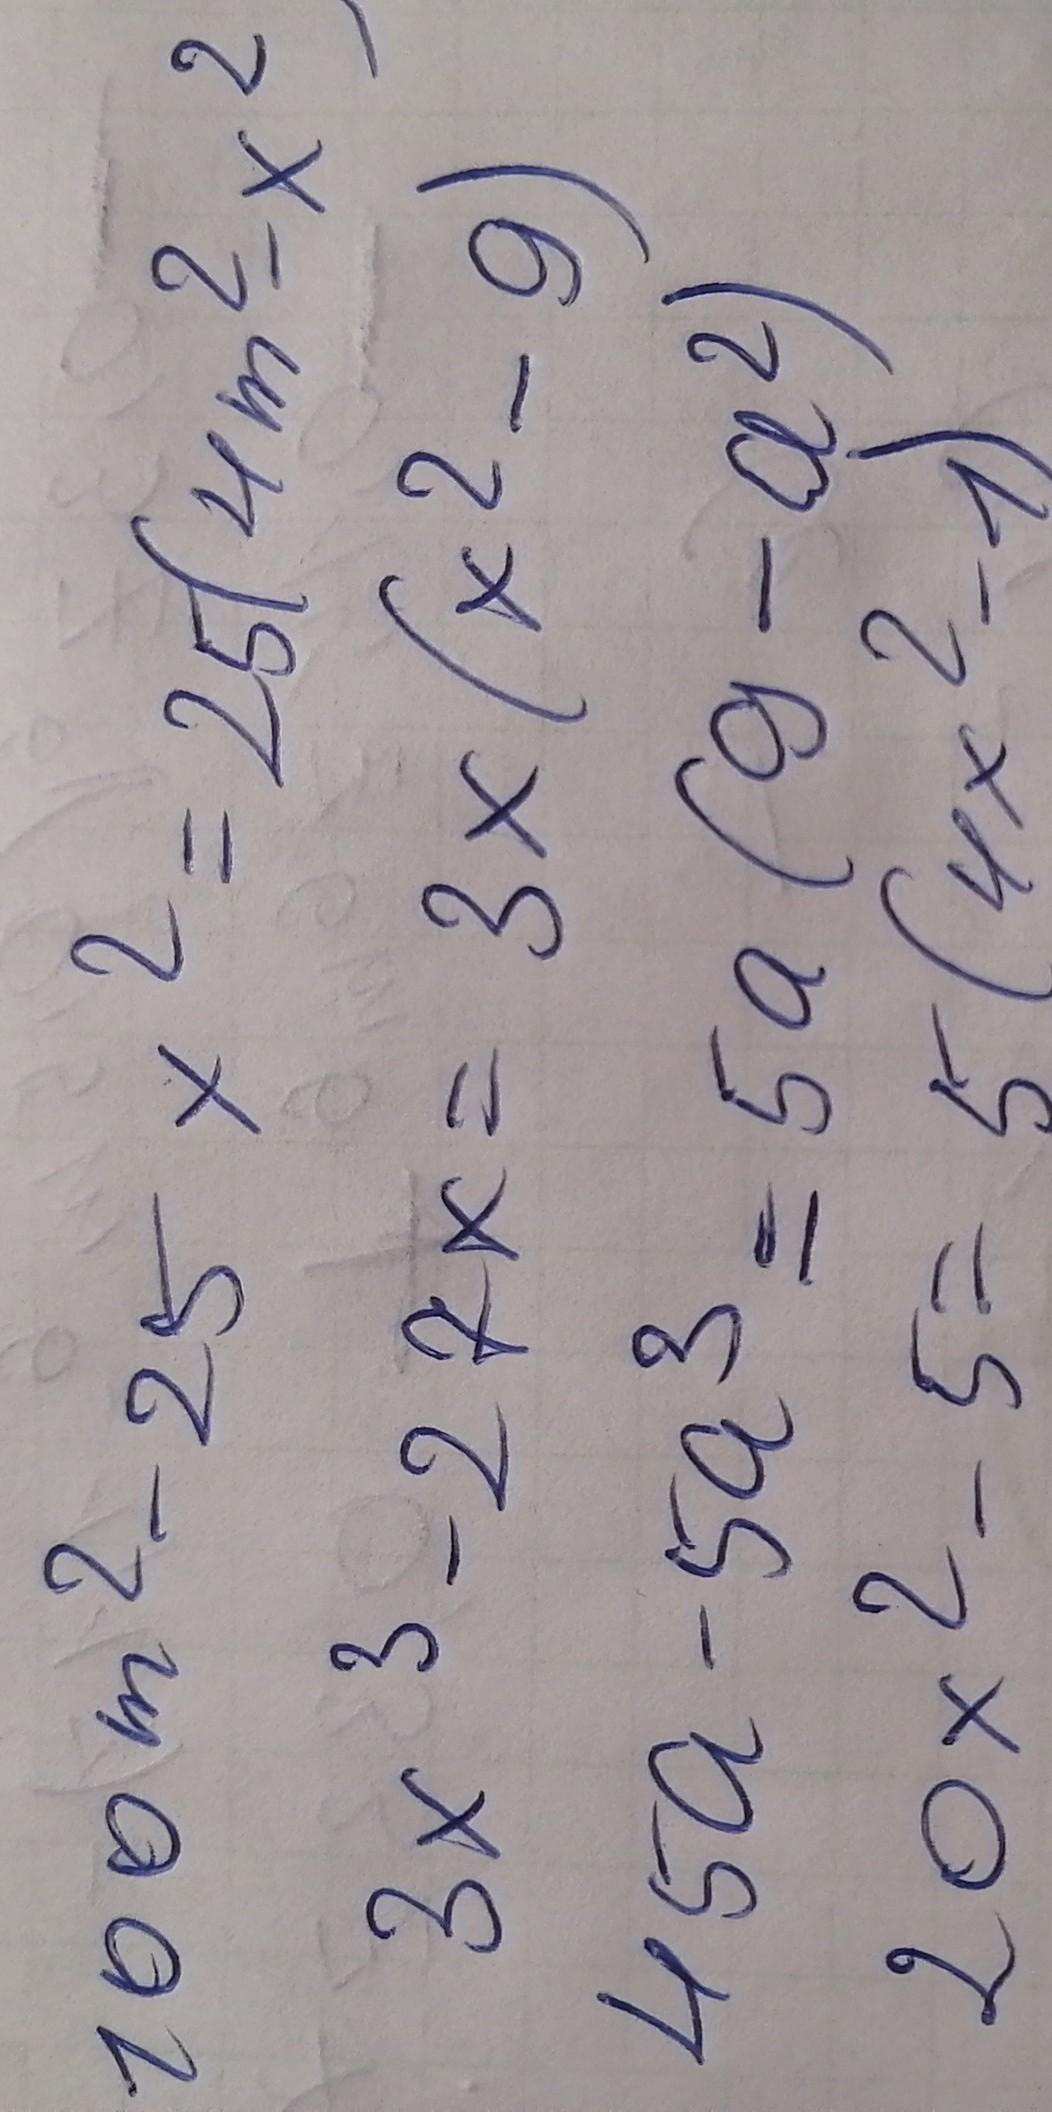 100m² - 25x² = 25(4m² - x²)
3x³ - 27x = 3x(x² - 9)
45a - 5a³ = 5a(9 - a²)
20x² - 5 = 5(4x² - 1)